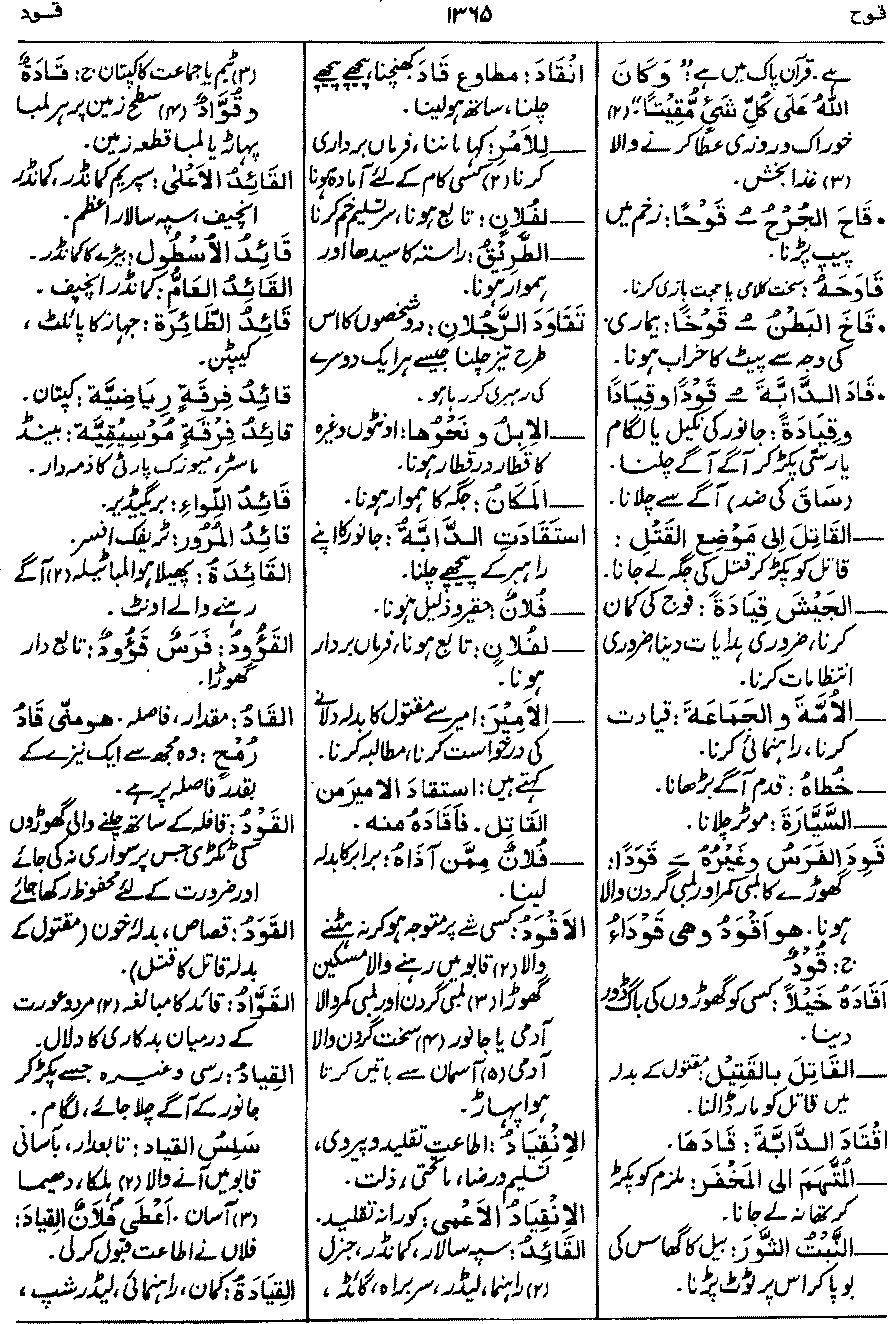 قوح
۱۳۶۵
قود
ہے۔ قرآن پاک میں ہے: "وَكَانَ
اللهُ عَلَى كُلِّ شَيْءٍ مُّقِيْتًا" (۲)
خوراک و روزی عطا کرنے والا
(۳) غذا بخش۔
• قَاحَ الجُرْحُ ـُ قَوْحًا: زخم میں
پیپ پڑنا۔
قَاوَحَهُ: سخت کلامی یا حجت بازی کرنا۔
• قَاخَ البَطْنُ ـُ قَوْخًا: بیماری
کی وجہ سے پیٹ کا خراب ہونا۔
• قَادَ الدَّابَّةَ ـُ قَوْدًا وقِيَادًا
وقِيَادَةً: جانور کی نکیل یا لگام
یا رسّی پکڑ کر آگے آگے چلنا۔
(سَاقَ کی ضد) آگے سے چلانا۔
ــــ القَاتِلَ اِلى مَوْضِعِ القَتْلِ:
قاتل کو پکڑ کر قتل کی جگہ لے جانا۔
ــــ الجَيْشَ قِيَادَةً: فوج کی کمان
کرنا، ضروری ہدایات دینا، ضروری
انتظامات کرنا۔
ــــ الأُمَّةَ و الجَمَاعَةَ: قیادت
کرنا، راہنمائی کرنا۔
ــــ خُطَاهُ: قدم آگے بڑھانا۔
ــــ السَّيَّارَةَ: موٹر چلانا۔
قَوِدَ الفَرَسُ وغَيْرُهُ ـَ قَوَدًا:
گھوڑے کا لمبی کمر اور لمبی گردن والا
ہونا۔ هو اَقْوَدُ وهى قَوْدَاءُ
ج: قُوْدٌ
اَقَادَهُ خَيْلاً: کسی کو گھوڑوں کی باگ ڈور
دینا۔
ــــ القَاتِلَ بالقَتِيْلِ: مقتول کے بدلہ
میں قاتل کو مار ڈالنا۔
اقْتَادَ الدَّابَّةَ: قَادَهَا۔
ــــ المُتَّهَمَ الى المَخْفَرِ: ملزم کو پکڑ
کر تھانہ لے جانا۔
ــــ النَّبْتُ الثَّوْرَ: بیل کا گھاس کی
بو پا کر اس پر ٹوٹ پڑنا۔
انْقَادَ: مطاوع قَادَ کھنچنا، پیچھے پیچھے
چلنا، ساتھ ہو لینا۔
ــــ لِلاَمْرِ: کہا ماننا، فرماں برداری
کرنا (۲) کسی کام کے لئے آمادہ ہونا
ــــ لفُلَانٍ: تابع ہونا، سرِ تسلیم خم کرنا
ــــ الطَّرِيْقُ: راستہ کا سیدھا اور
ہموار ہونا۔
تَقَاوَدَ الرَّجُلَانِ: دو شخصوں کا اس
طرح تیز چلنا جیسے ہر ایک دوسرے
کی رہبری کر رہا ہو۔
ــــ الإبِلُ و نَحْوُها: اونٹوں وغیرہ
کا قطار در قطار ہونا۔
ــــ المَكَانُ: جگہ کا ہموار ہونا۔
اسْتَقَادَتِ الدَّابَّةُ: جانور کا اپنے
راہبر کے پیچھے چلنا۔
ــــ فُلَانٌ: حقیر و ذلیل ہونا۔
ــــ لفُلَانٍ: تابع ہونا، فرماں بردار
ہونا۔
ــــ الاَمِيْرَ: امیر سے مقتول کا بدلہ دلانے
کی درخواست کرنا، مطالبہ کرنا۔
کہتے ہیں: استقادَ الاميرَ من
القَاتِلِ۔ فَاَقَادَهُ منه۔
ــــ فُلَانٌ مِمَّن آذَاهُ: برابر کا بدلہ
لینا۔
الاَقْوَدُ: کسی شے پر متوجہ ہو کر نہ ہٹنے
والا (۲) قابو میں رہنے والا مسکین
گھوڑا (۳) لمبی گردن اور لمبی کمر والا
آدمی یا جانور (۴) سخت گردن والا
آدمی (۵) آسمان سے باتیں کرتا
ہوا پہاڑ۔
الاِنْقِيَادُ: اطاعت تقلید و پیروی،
تسلیم و رضا، ماتحتی، ذلت۔
الاِنْقِيَادُ الاَعْمى: کورانہ تقلید۔
القَائِدُ: سپہ سالار، کمانڈر، جنرل
(۲) راہنما، لیڈر، سربراہ، گائڈ،
(۳) ٹیم یا جماعت کا کپتان ج: قَادَةٌ
وقُوَّادٌ (۴) سطح زمین پر ہر لمبا
پہاڑ یا لمبا قطعہ زمین۔
القَائِدُ الاَعْلٰى: سپریم کمانڈر، کمانڈر
انچیف، سپہ سالارِ اعظم۔
قَائِدُ الأسْطُولِ: بیڑے کا کمانڈر۔
القَائِدُ العَامُّ: کمانڈر انچیف۔
قَائِدُ الطَّائِرَةِ: جہاز کا پائلٹ،
کیپٹن۔
قَائِدُ فِرقَةٍ رِيَاضِيَّة: کپتان۔
قَائِدُ فِرْقَةٍ مُوْسِيْقِيَّة: بینڈ
ماسٹر، میوزک پارٹی کا ذمہ دار۔
قَائِدُ اللِّوَاءِ: برگیڈیر۔
قَائِدُ المُرُورِ: ٹریفک افسر۔
القَائِدَةُ: پھیلا ہوا لمبا ٹیلہ (۲) آگے
رہنے والے اونٹ۔
القَؤُودُ: فَرَسٌ قَؤُودٌ: تابع دار
گھوڑا۔
القَادُ: مقدار، فاصلہ۔ هو منّى قَادُ
رُمْحٍ: وہ مجھ سے ایک نیزے کے
بقدر فاصلہ پر ہے۔
القَوْدُ: قافلہ کے ساتھ چلنے والی گھوڑوں
کی ٹکڑی جس پر سواری نہ کی جائے
اور ضرورت کے لئے محفوظ رکھا جائے
القَوَدُ: قصاص، بدلۂ خون (مقتول کے
بدلہ قاتل کا قتل)۔
القَوَّادُ: قائد کا مبالغہ (۲) مرد و عورت
کے درمیان بدکاری کا دلال۔
القِيَادُ: رسی وغیرہ جسے پکڑ کر
جانور کے آگے چلا جائے، لگام۔
سَلِسُ القياد: تابعدار، بآسانی
قابو میں آنے والا (۲) ہلکا، دھیما
(۳) آسان۔ اَعْطٰى فُلَانٌ القِيَادَ:
فلاں نے اطاعت قبول کر لی۔
القِيَادَةُ: کمان، راہنمائی، لیڈرشپ،